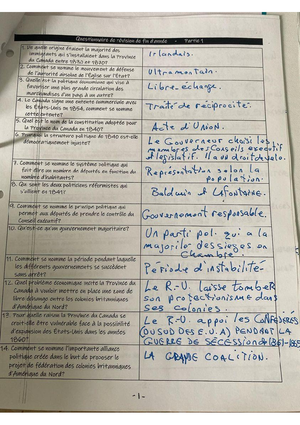 Questionnaire de révision de fin d'année - Partie 1
1. De quelle origine étaient la majorité des
immigrants qui s'installaient dans la Province
du Canada entre 1830 en 1850?
Irlandais.
2. Comment se nomme le mouvement de défense
de l'autorité absolue de l'Église sur l'État?
Ultramontain.
3. Quelle est la politique économique qui vise à
favoriser une plus grande circulation des
marchandises d'un pays à un autre?
Libre échange.
4. Le Canada signe une entente commerciale avec
les États-Unis en 1854, comment se nomme
cette entente?
Traité de réciprocité.
5. Quel est le nom de la constitution adoptée pour
la Province du Canada en 1840?
Acte d'UNION.
6. Pourquoi la structure politique de 1840 est-elle
démocratiquement injuste?
Le Gouverneur choisi les
membres des Conseils exécutif
et législatif. Il a un droit de véto.
7. Comment se nomme le système politique qui
fait élire un nombre de députés en fonction du
nombre d'habitants?
Représentation selon la
population.
8. Qui sont les deux politiciens réformistes qui
s'allient en 1841?
Baldwin et LAFONTAINE.
9. Comment se nomme le principe politique qui
permet aux députés de prendre le contrôle du
Conseil exécutif?
Gouvernement responsable.
10. Qu'est-ce qu'un gouvernement majoritaire?
Un parti pol. qui a la
majorité des sièges en
Chambre.
11. Comment se nomme la période pendant laquelle
les différents gouvernements se succèdent
sans arrêt?
Période d'instabilité.
12. Quel problème économique incite la Province du
Canada à vouloir mettre en place une zone de
libre échange entre les colonies britanniques
d'Amérique du Nord?
Le R-U. laisse tomber
son protectionisme dans
ses colonies.
13. Pour quelle raison la Province du Canada se
croit-elle être vulnérable face à la possibilité
d'expansion des États-Unis dans les années
1860?
Le R-U. appui les CONFÉDÉRÉS
(DU SUD DES E.U.A) PENDANT LA
GUERRE DE SÉCESSION de 1861-1865
14. Comment se nomme l'importante alliance
politique créée dans le but de proposer le
projet de fédération des colonies britanniques
d'Amérique du Nord?
LA GRANDE COALITION.
- 1 -